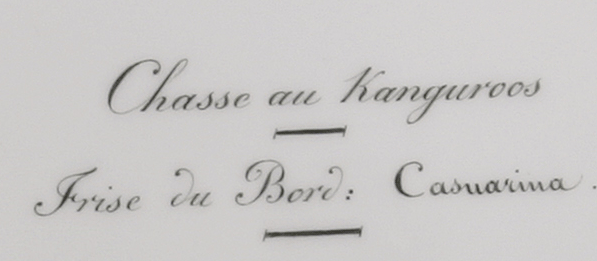 Chasse au Kanguroos
Frise du Bord: Casuarina.